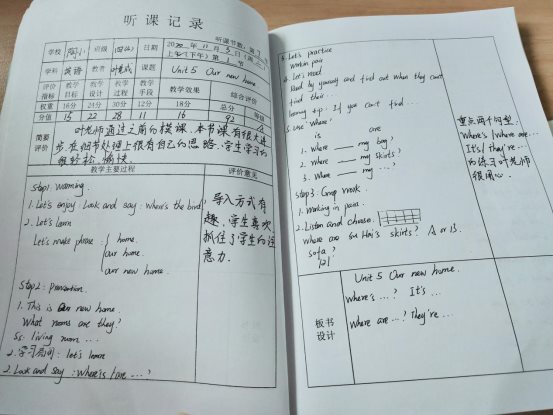 听课记录
听课节数:第 7 节
学校 班级 四(4) 日期 2020年11月3日(周二)
上午(下午)第 1 节
学科 英语 教者 课题 Unit 5 Our new home
评价指标 教学目标 教学设计 教学过程 教学手段 教学效果 综合评价
权重 16分 24分 30分 12分 18分 总分 等级
分值 15 22 28 11 16 92 A
简要评价
叶老师通过之前的模课,本节课有很大进
步,在细节处理上很有自己的思路,学生学习的
很轻松、愉快。
教学主要过程 评价意见
Step1: warming.
1. Let's enjoy: Look and say: where's the bird?
2. Let's learn
Let's make phrase: home.
our home.
our new home.
导入方式有
趣,学生喜欢,
抓住了学生的注
意力.
Step2: presentation.
1. This is our new home.
What rooms are they?
Ss: living room ...
2. 学习房间: let's learn
2. Look and say: Where's/are ...?
3. Let's practice
Work in pair
4. Let's read
Read by yourself and find out when they can't
find their ...
learning tip: If you can't find ...
5. Use 'where'
is are
1. Where ___ my bag?
2. where ___ my skirts?
3. Where ___ my ...?
重点两个句型:
Where's/where are...
It's/they're...
的练习叶老师
很用心.
Step3: Group work.
1. Working in pairs.
2. Listen and choose.
where are Su Hai's skirts? A or B.
sofa?
板书设计
Unit 5 Our new home.
Where's ...? It's ...
Where are ...? They're ...